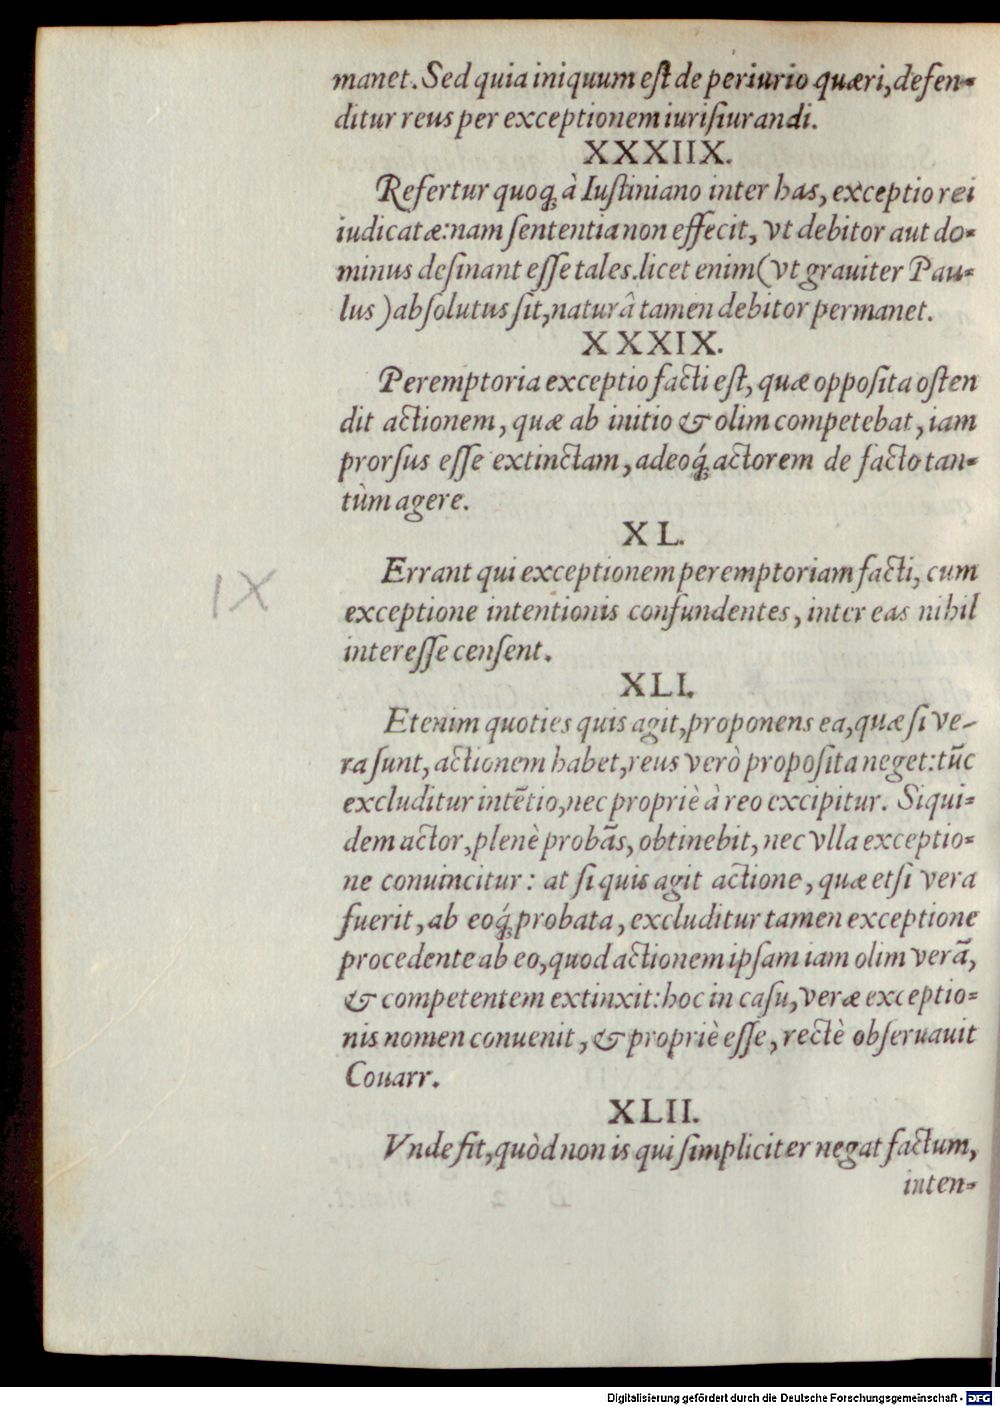 manet. Sed quia iniquum eſt de periurio quæri, defen-
ditur reus per exceptionem iuriſiurandi.
XXXIIX.
Refertur quoq; à Iuſtiniano inter has, exceptio rei
iudicatæ: nam ſententia non effecit, vt debitor aut do-
minus deſinant eſſe tales. licet enim (vt grauiter Pau-
lus) abſolutus ſit, naturâ tamen debitor permanet.
XXXIX.
Peremptoria exceptio facti eſt, quæ oppoſita oſten
dit actionem, quæ ab initio & olim competebat, iam
prorſus eſſe extinctam, adeoq́; actorem de facto tan-
tùm agere.
XL.
Errant qui exceptionem peremptoriam facti, cum
exceptione intentionis confundentes, inter eas nihil
intereſſe cenſent.
IX
XLI.
Etenim quoties quis agit, proponens ea, quæ ſi ve-
ra ſunt, actionem habet, reus verò propoſita neget: tūc
excluditur intētio, nec propriè à reo excipitur. Siqui-
dem actor, plenè probās, obtinebit, nec vlla exceptio-
ne conuincitur: at ſi quis agit actione, quæ etſi vera
fuerit, ab eoq́; probata, excluditur tamen exceptione
procedente ab eo, quod actionem ipſam iam olim verā,
& competentem extinxit: hoc in caſu, veræ exceptio-
nis nomen conuenit, & propriè eſſe, rectè obſeruauit
Couarr.
XLII.
Vnde fit, quòd non is qui ſimpliciter negat factum,
inten-
Digitalisierung gefördert durch die Deutsche Forschungsgemeinschaft - DFG